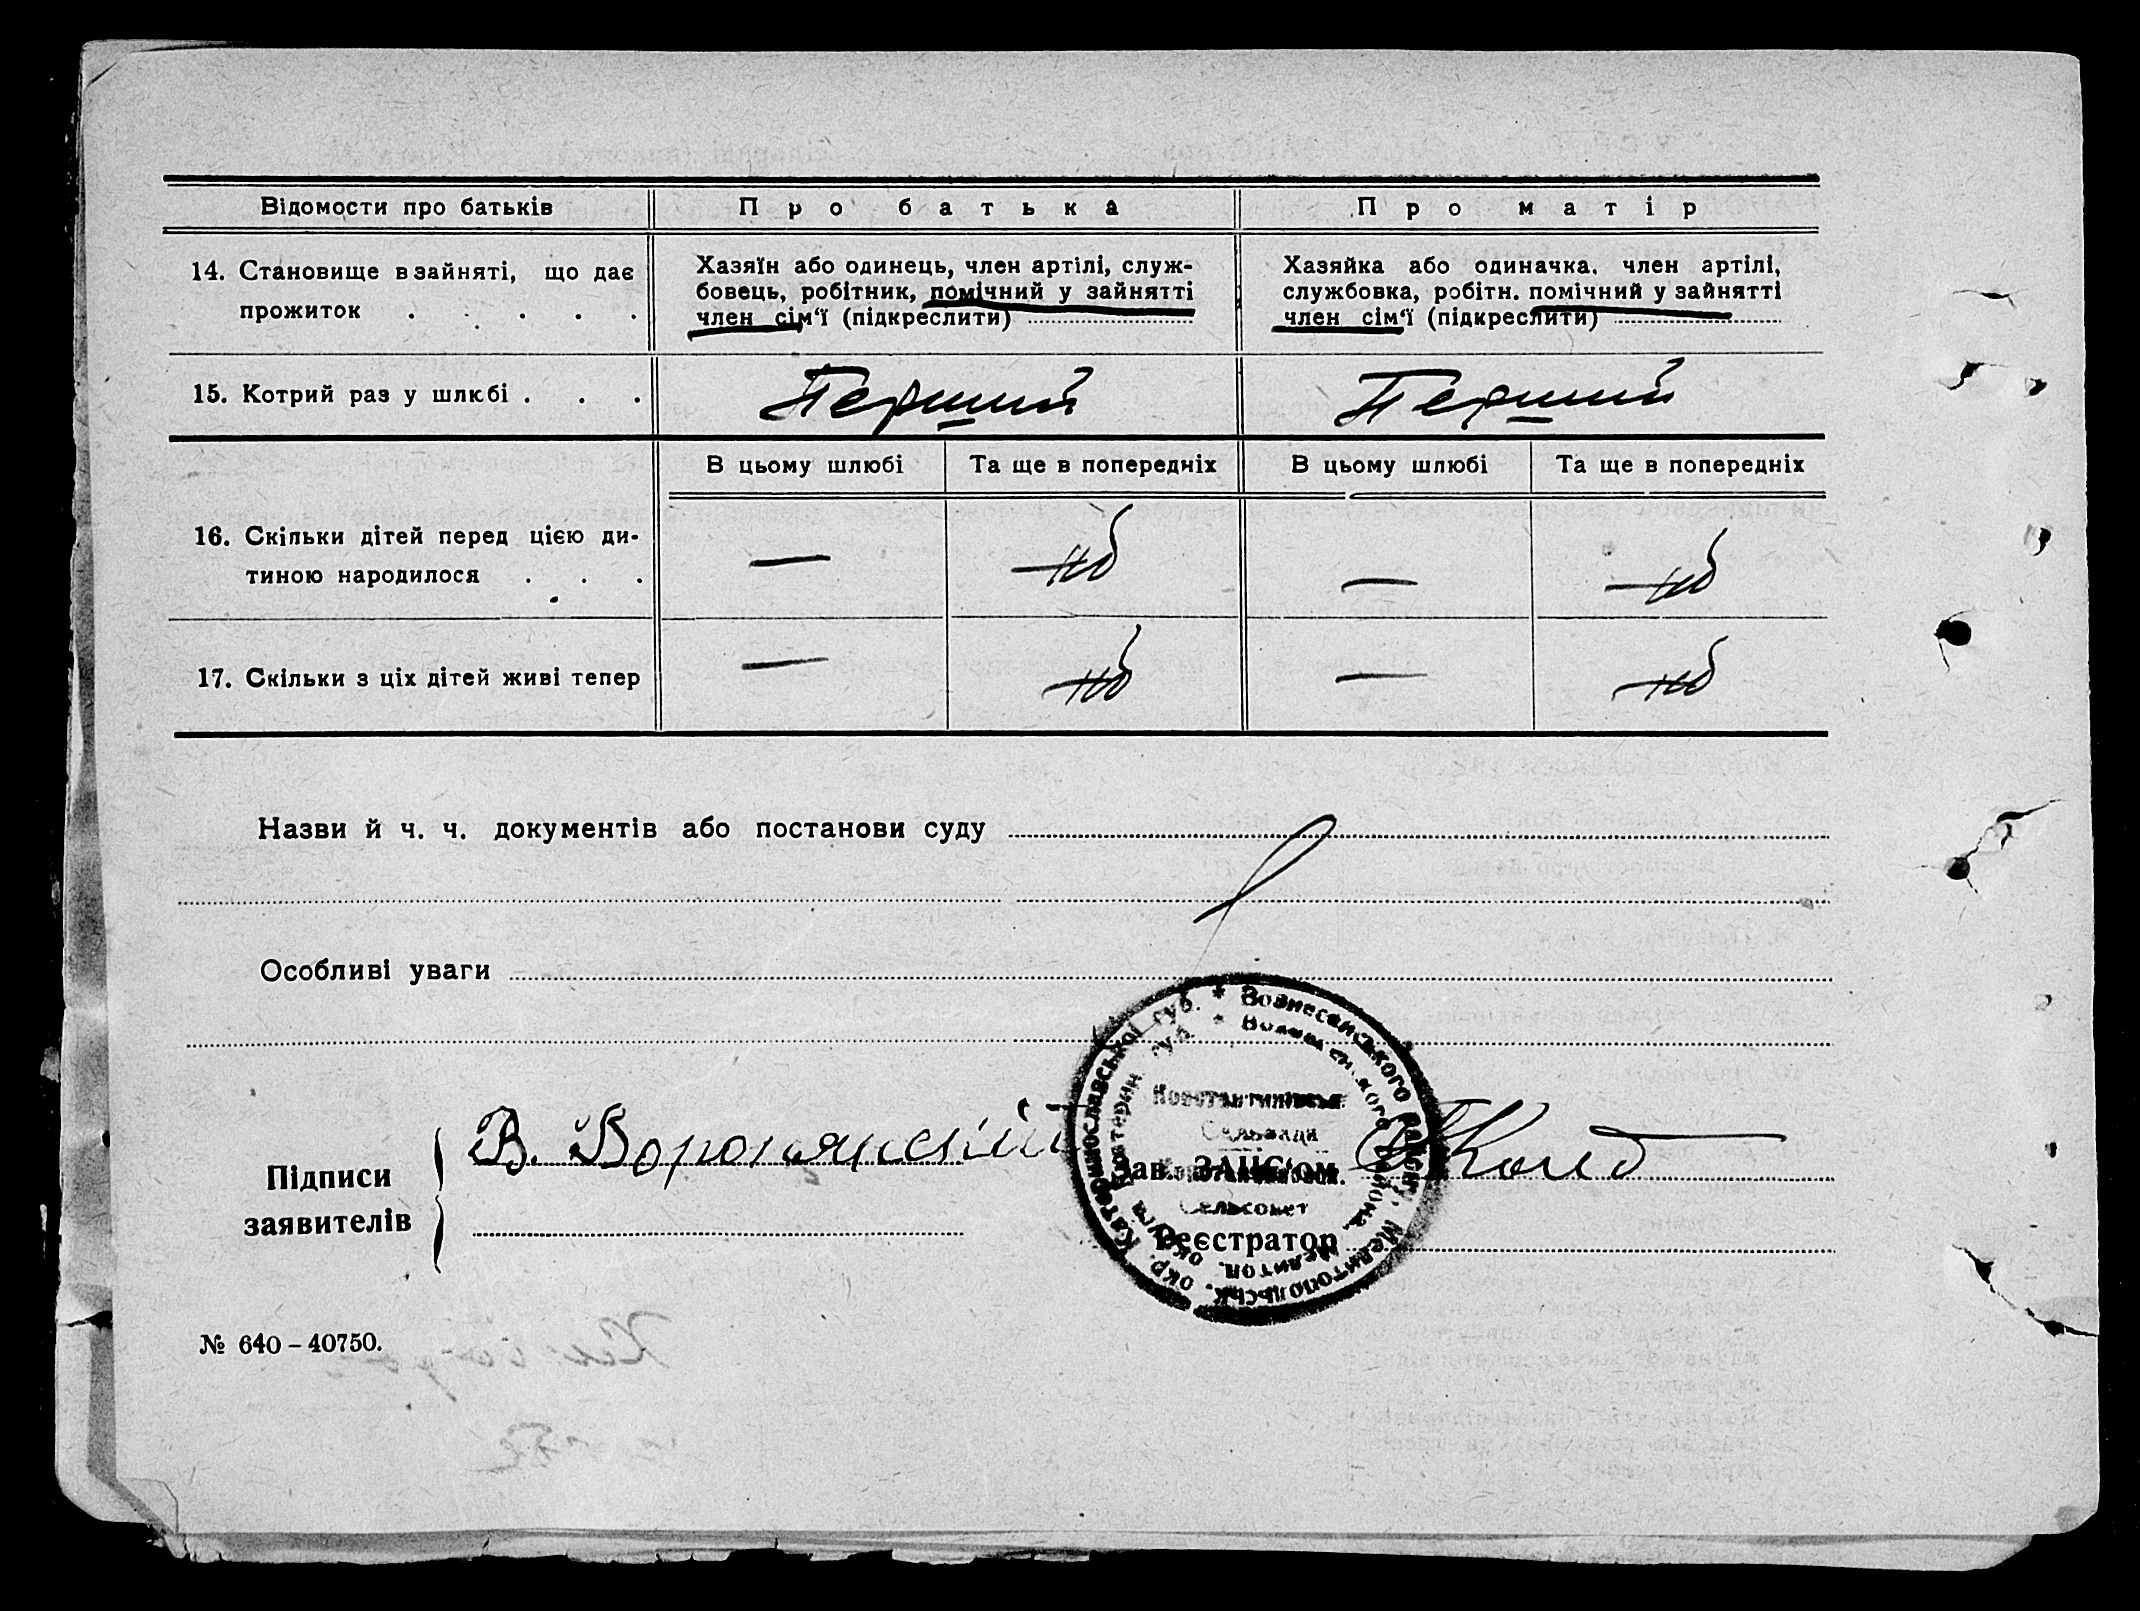 Відомости про батьків
Про батька
Про матір
14. Становище в зайняті, що дає
прожиток . . . . .
Хазяїн або одинець, член артілі, служ-
бовець, робітник, помічний у зайнятті
член сім'ї (підкреслити)
Хазяйка або одиначка, член артілі,
службовка, робітн. помічний у зайнятті
член сім'ї (підкреслити)
15. Котрий раз у шлюбі . . .
Перший
Перший
В цьому шлюбі
Та ще в попередніх
В цьому шлюбі
Та ще в попередніх
16. Скільки дітей перед цією ди-
тиною народилося . . .
—
—
17. Скільки з ціх дітей живі тепер
—
—
Назви й ч. ч. документів або постанови суду
Особливі уваги
Підписи
заявителів
В. Воронянский
Зав. ЗАПС'ом
Реєстратор
* Вознесенського району, Мелитопольськ. окр. Катеринославської губ.
Сельради
Сельсовет
№ 640 – 40750.